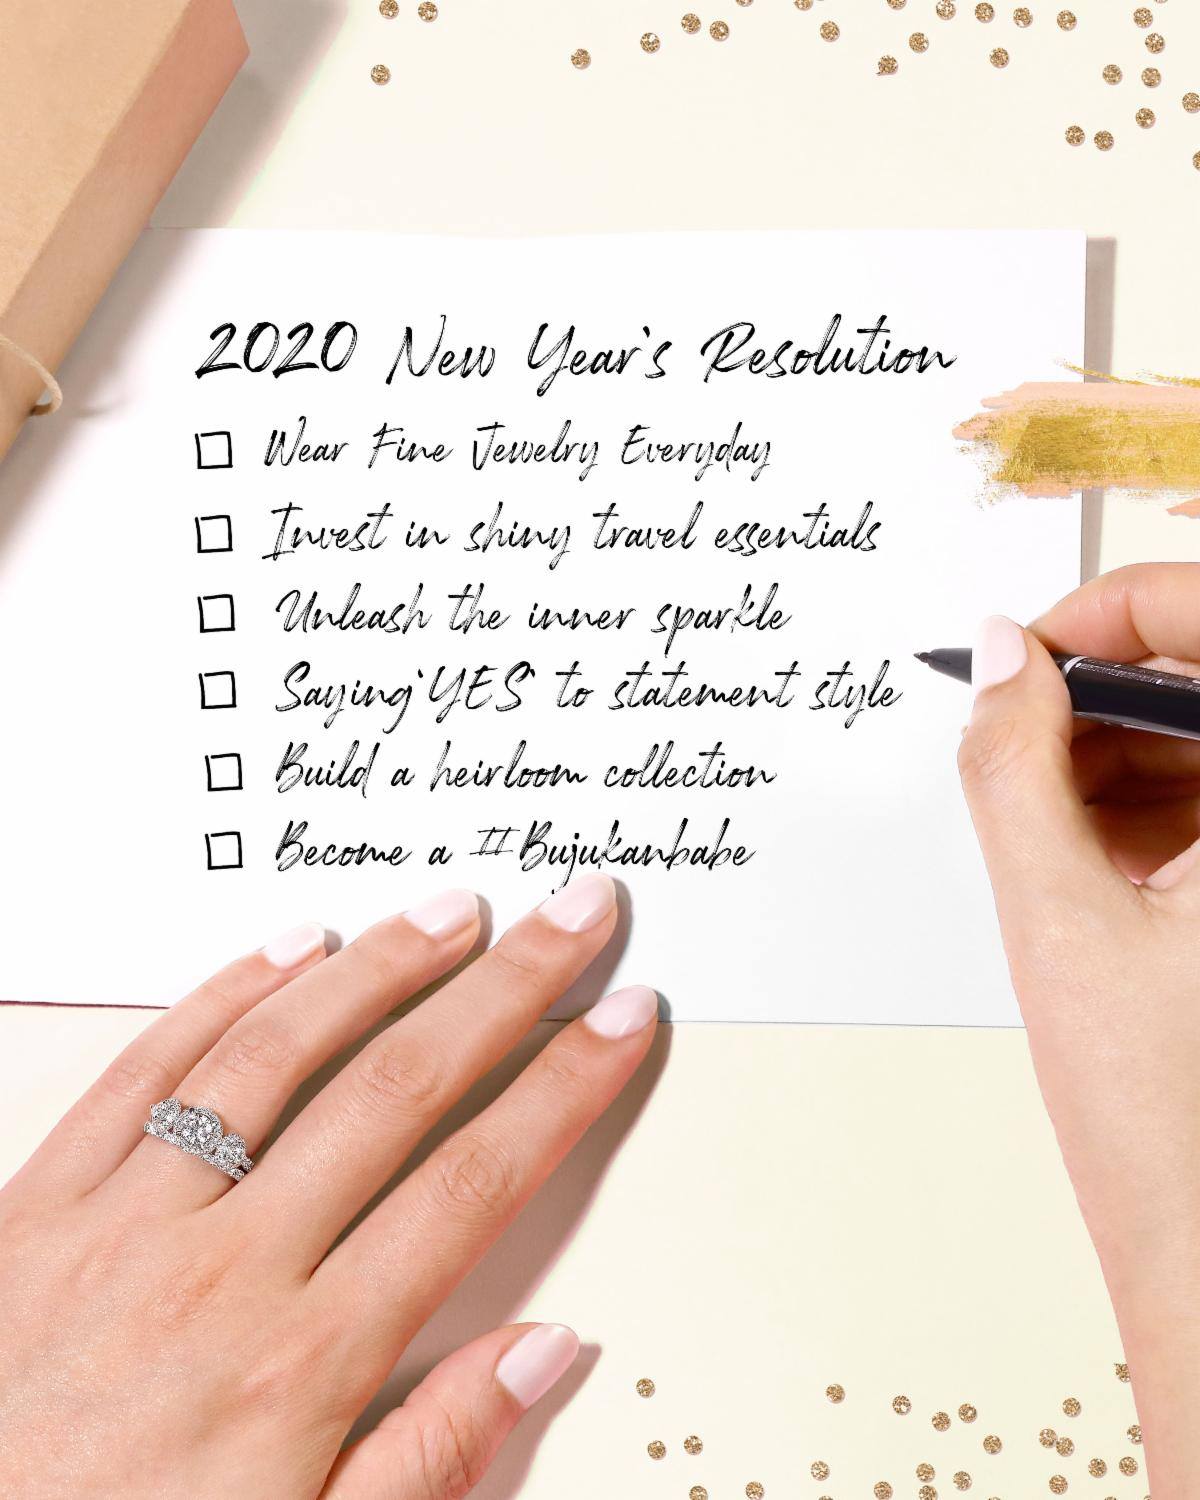 2020 New Year's Resolution
Wear Fine Jewelry Everyday
Invest in shiny travel essentials
Unleash the inner sparkle
Saying 'YES' to statement style
Build a heirloom collection
Become a #Bujukanbabe